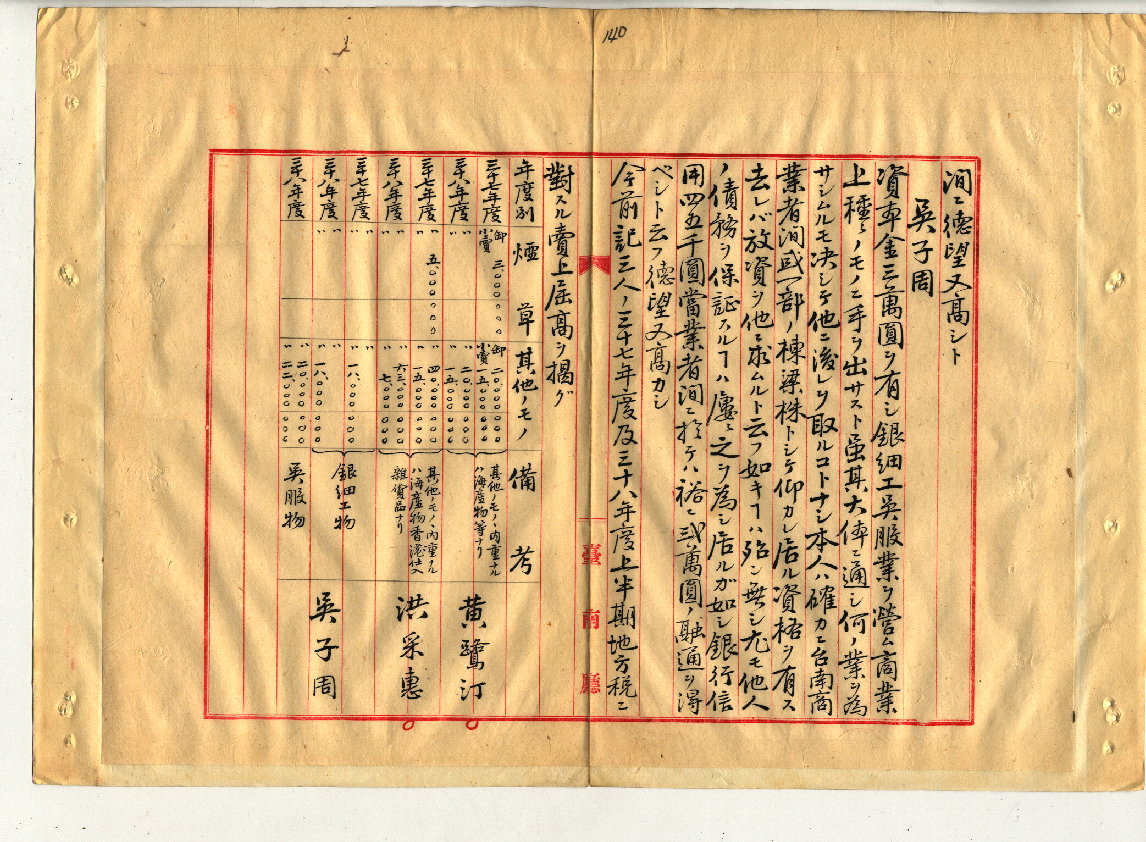 140
間ニ德望又高シト
吳子周
資本金三萬圓ヲ有シ銀細工吳服業ヲ營ム商業
上種々ノモノニ手ヲ出サスト虽其大体ニ通シ何ノ業ヲ為
サシムルモ決シテ他ニ後レヲ取ルコトナシ本人ハ確カニ台南商
業者間或一部ノ棟梁株トシテ仰カレ居ル資格ヲ有ス
去レバ放資ヲ他ニ求ムルト云フ如キハ殆ン無シ尤モ他人
ノ債務ヲ保証スルヿハ屢々之ヲ為シ居ルガ如シ銀行信
用四五千圓當業者間ニ於テハ裕ニ弐萬圓ノ融通ヲ得
ベシト云フ德望又高カシ
今前記三人ノ三十七年度及三十八年度上半期地方税ニ
臺南廳
對スル賣上届高ヲ揭グ
年度別 煙草 其他ノモノ 備考
三十七年度 卸 三〇〇〇〇〇〇 卸 二〇〇〇〇〇〇 其他ノモノヽ内重ナル
小賣 小賣 一五〇〇〇〇〇 ハ海産物等ナリ 黄鷺汀
三十八年度 〃 〃 二〇〇〇〇〇〇
〃 〃 一五〇〇〇〇〇
三十七年度 〃 五〇〇〇〇〇 〃 四〇〇〇〇〇〇 其他ノモノヽ内重ナル
〃 一五〇〇〇〇〇 ハ海産物香港仕入
三十八年度 〃 〃 六三〇〇〇〇〇 雜貨品ナリ 洪采惠
〃 七〇〇〇〇〇
三十七年度 〃 〃 一八〇〇〇〇〇 銀細工物
三十八年度 〃 〃 一八〇〇〇〇〇
三十八年度 〃 〃 二〇〇〇〇〇〇 吳服物 吳子周
〃 二二〇〇〇〇〇